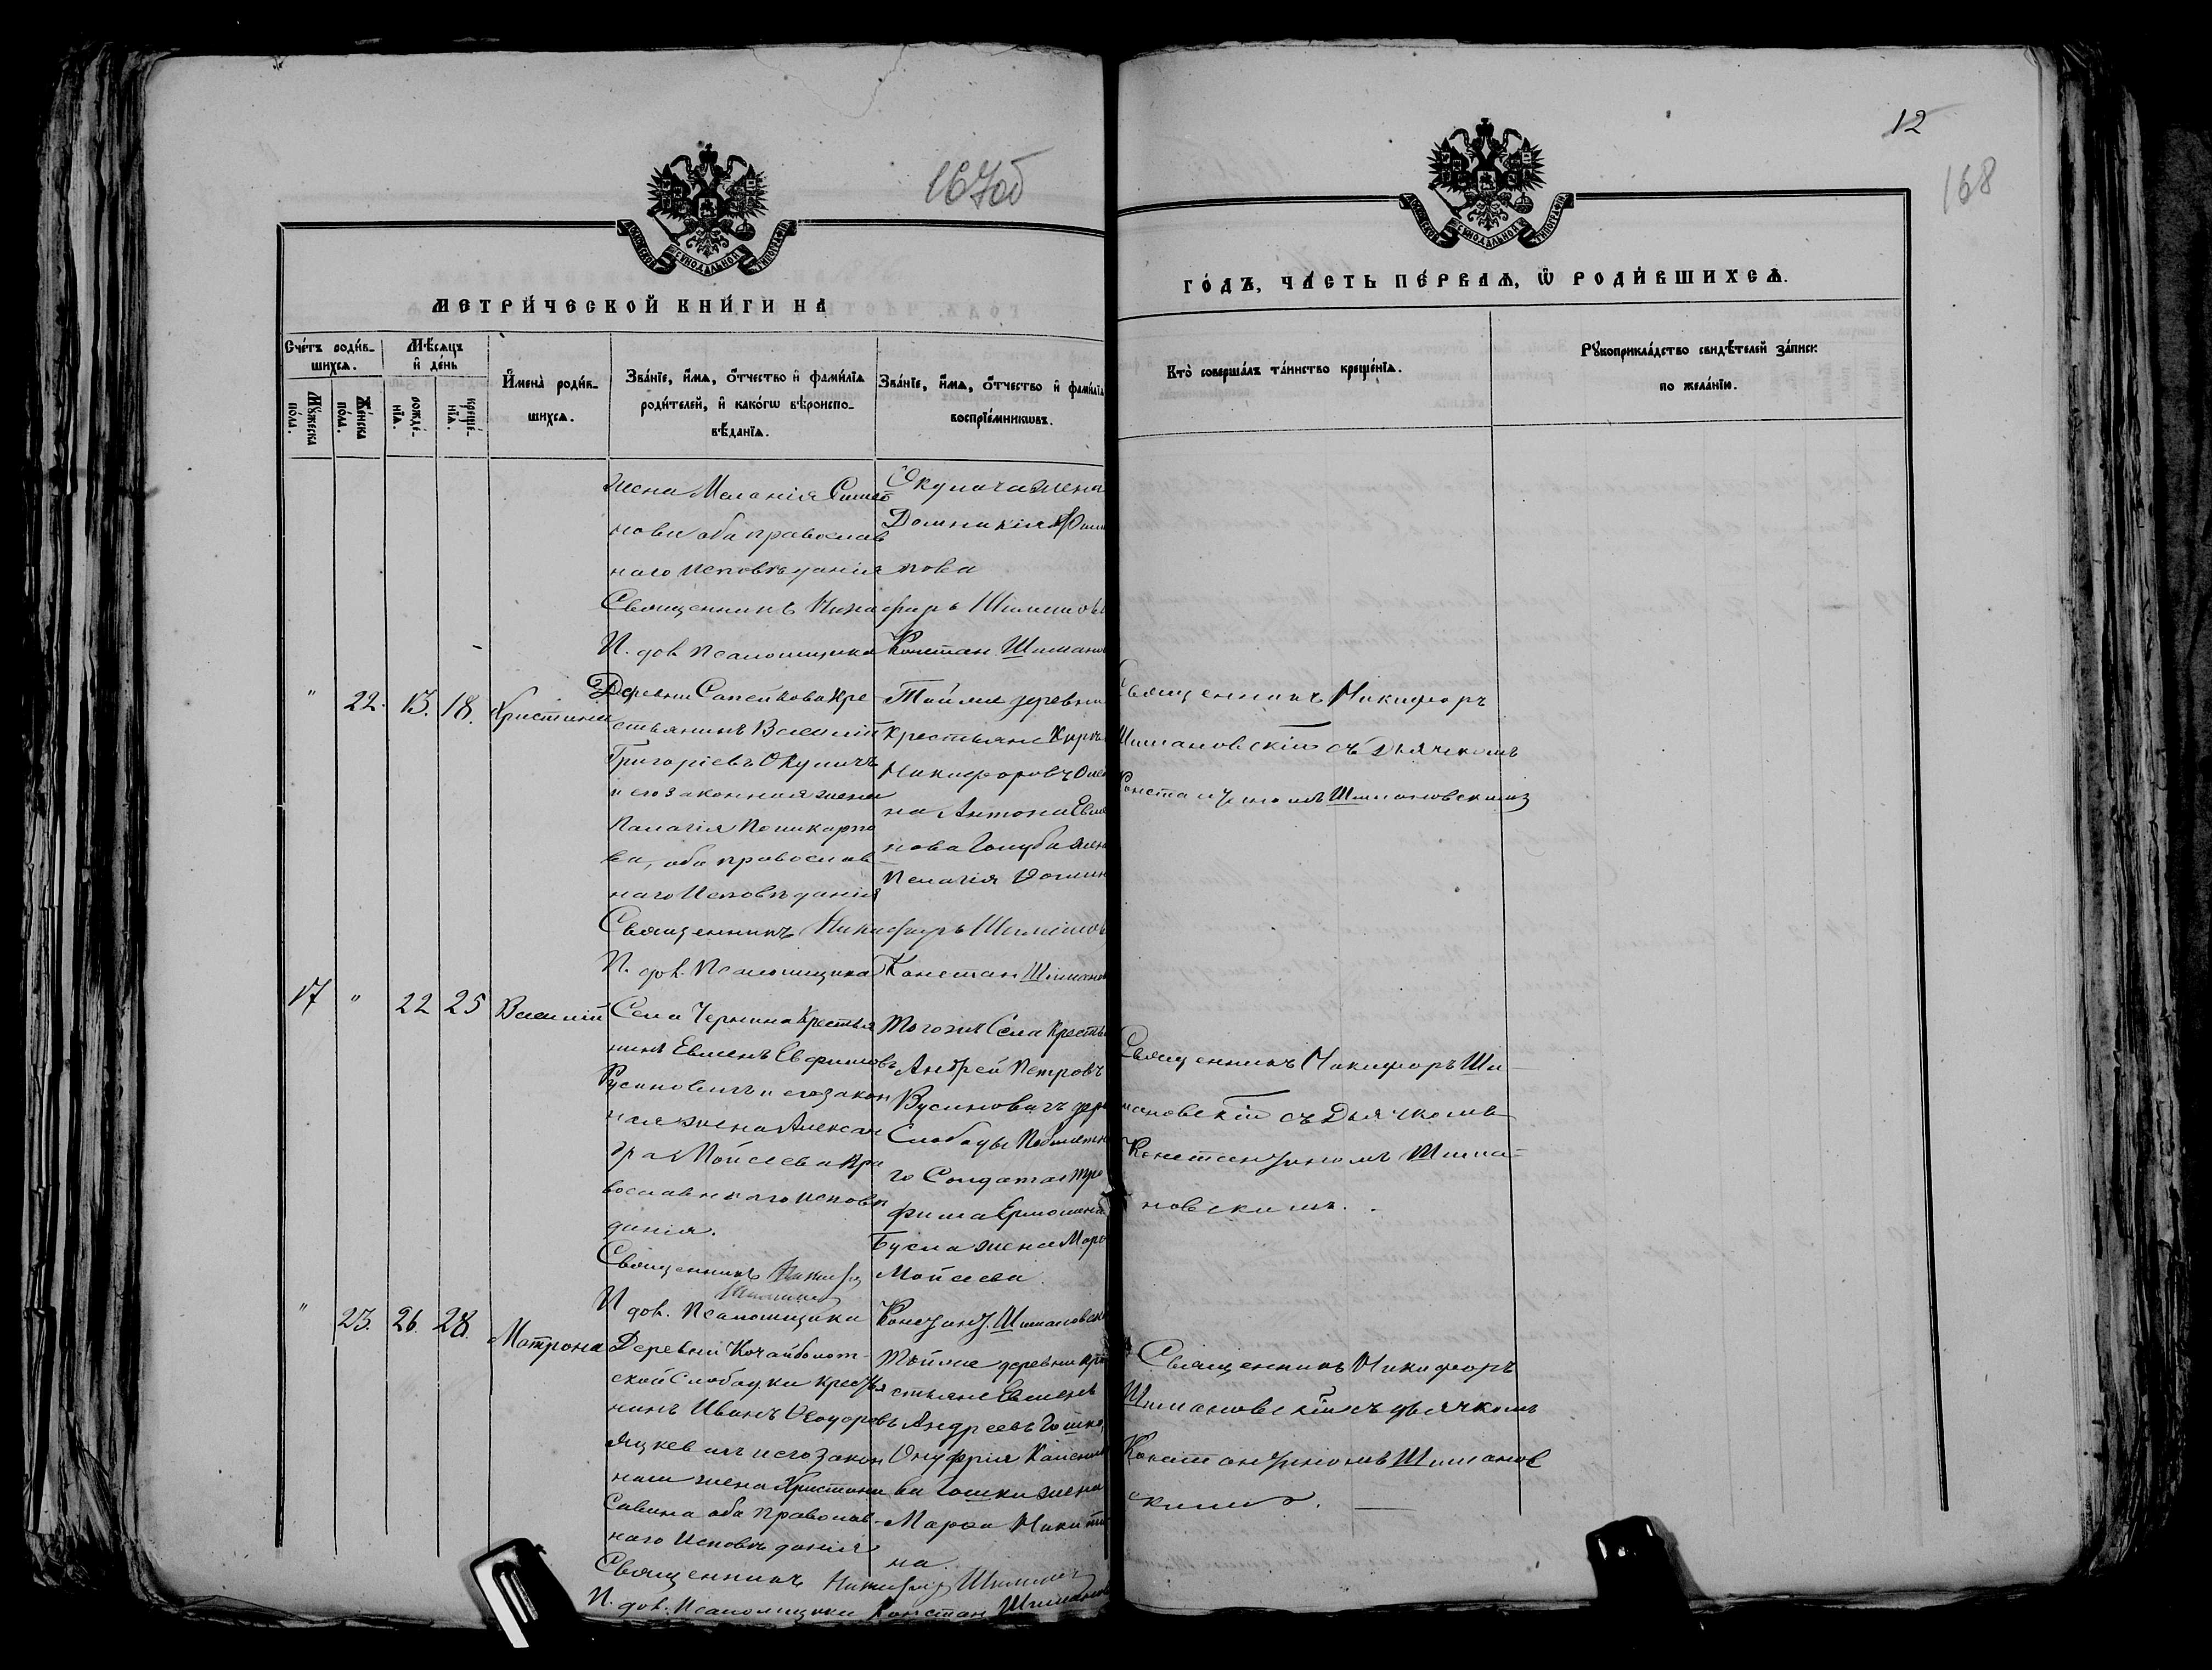 167об
МЕТРИ́ЧЕСКОЙ КНИ́ГИ НА
Сче́тъ роди́в-
шихсѧ.
Мꙋ́жеска по́ла.
Же́нска по́ла.
Мѣ́сѧцъ
и҆ де́нь
рожде́-
нїѧ.
креще́-
нїѧ.
И҆мена̀ роди́в-
шихсѧ.
Зва́нїе, и҆́мѧ, ѻ҆́тчество и҆ фами́лїѧ
роди́телей, и҆ како́гѡ вѣроиспо-
вѣ́данїѧ.
Зва́нїе, и҆́мѧ, ѻ҆́тчество и҆ фами́лїѧ
воспрїе́мникѡвъ.
жена Меланія
нова оба православ
наго Исповѣданія
Священникъ
И. дов. Псаломщика
Окулича жена
Домникія
пова
Констан. Шиманов
" 22. 13. 18. Христина
Деревни Сапейкова Кре-
стьянинъ Василій
Григоріевъ Окуличъ
и его законная жена
Палагія Поликарпо
ва, оба православ
наго Исповѣданія
Священникъ
И. дов. Псаломщика
Той же деревни
Крестьяне
Никифоровъ
на Антона
нова Голуба жен
Пелагія
Констан Шиманов
17 " 22 25 Василій
Села Чернина Крестья
нинъ Евменъ Евфимовъ
Русиновичъ и его закон
ная жена Алексан
дра Мойсеева пра
вославнаго исповѣ
данія.
Священникъ
И дов. Псаломщика
Того же Села Крестья
Андрей Петровъ
Русиновичъ дер
Слободы
го Солдата Тро
фима
Бусла жена
Мойсеева.
Шимановск
" 23. 26. 28. Матрона
Деревни
ской Слободки крестья
нинъ Иванъ Ѳеодоровъ
Яцкевичъ и его закон
ная жена Христина
Савина оба Православ-
наго Исповѣданія
Священникъ
И. дов. Псаломщика Констан Шиманов
Той же деревни кре
стьяне Евменъ
Андреевъ Гошко,
Онуфрія
ва Гошки жена
Марѳа Никити
на
12
168
ГО́ДЪ, ЧА́СТЬ ПЕ́РВАѦ, Ѡ҆ РОДИ́ВШИХСѦ.
Кто̀ соверша́лъ та́инство креще́нїѧ.
Рꙋкоприкла́дство свидѣ́телей за́писи
по жела́нїю.
Священникъ Никифоръ
Шимановскій съ Дьячкомъ
Константиномъ Шимановскимъ
Священникъ Никифоръ Ши-
мановскій съ Дьячкомъ
Константиномъ Шима-
новскимъ.
Священникъ Никифоръ
Шимановскій съ дьячкомъ
Константиномъ Шиманов
скимъ.